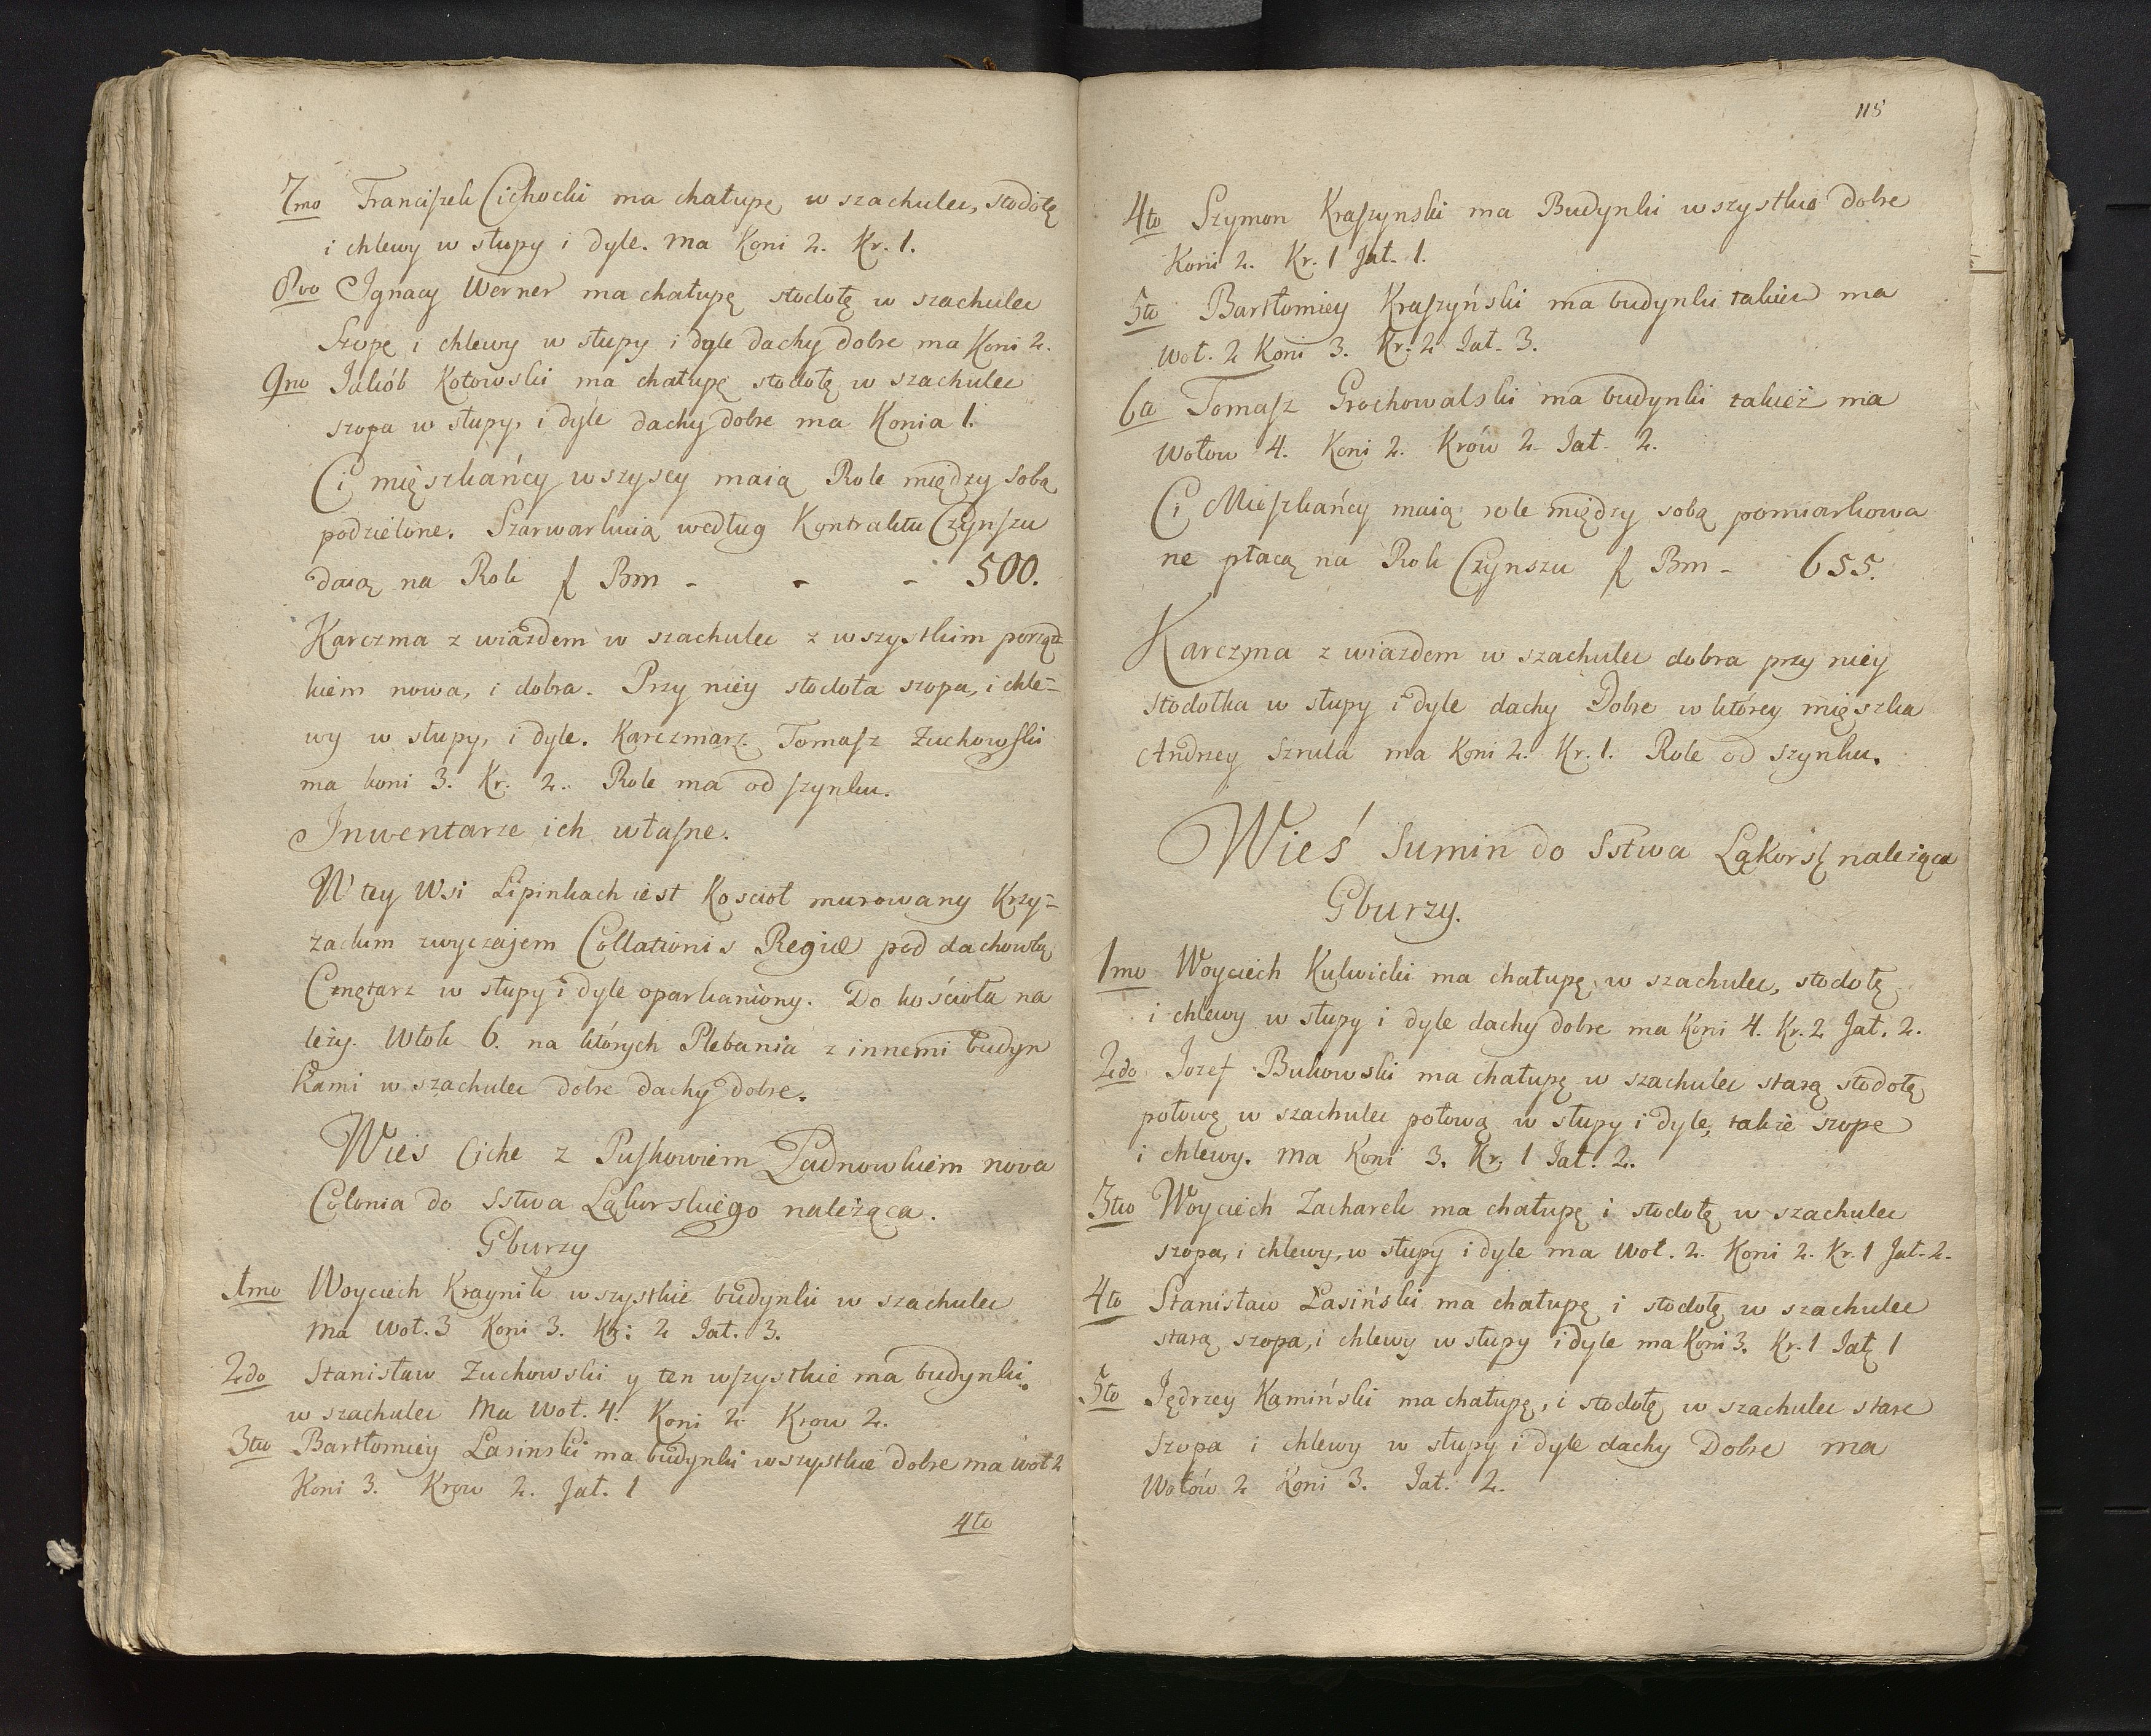 7mo Franciszek Cichocki ma chałupę w szachulec, stodołę
i chlewy w słupy i dyle. Ma Koni 2. Kr. 1.
8vo Ignacy Werner ma chałupę stodołę w szachulec
Szopę i chlewy w słupy i dyle dachy dobre ma Koni 2.
9no Jakób Kotowski ma chałupę stodołę w szachulec
szopa w słupy, i dyle dachy dobre ma Konia 1.
Ci mięszkańcy wszyscy maią Role między sobą
podzielone. Szarwarkuią według Kontraktu Czynszu
daią na Rok f Bm - - - 500.
Karczma z wiazdem w szachulec z wszystkim porząd
kiem nowa, i dobra. Przy niéy stodoła szopa, i chle=
wy w słupy, i dyle. Karczmarz Tomasz Żuchowski
ma koni 3. Kr. 2. Role ma od szynku.
Inwentarze ich własne.
W tey Wsi Lipinkach iest Kościoł murowany Krzy=
żackim zwyczajem Collationis Regiæ pod dachowką
Cmętarz w słupy i dyle oparkaniony. Do kościoła na
leży. Włok 6. na których Plebania z innemi budyn
kami w szachulec dobre dachy dobre.
Wieś Ciche z Puskowiem Ładnowkiem nova
Colonia do Sstwa Ląkorskiego należąca.
Gburzy
1mo Woyciech Kraynik wszystkie budynki w szachulec
Ma Woł. 3 Koni 3. Kr: 2 Jał. 3.
2do Stanisław Żuchowski y ten wszystkie ma budynki
w szachulec Ma Woł. 4. Koni 2. Krow 2.
3tio Bartłomiéy Lasinski ma budynki wszystkie dobre ma Woł 2
Koni 3. Krow 2. Jał. 1
4to
115
4to Szymon Kraszynski ma Budynki wszystkie dobre
Koni 2. Kr. 1 Jał. 1.
5to Bartłomiéy Kraszyński ma budynki takież ma
Woł. 2 Koni 3. Kr. 2 Jał. 3.
6to Tomasz Grochowalski ma budynki takież ma
Wołow 4. Koni 2. Krów 2. Jał. 2.
Ci Mieszkańcy maią role między sobą pomiarkowa
ne płacą na Rok Czynszu f Bm - 655.
Karczma z wiazdem w szachulec dobra przy niéy
stodołka w słupy i dyle dachy Dobre w któréy mięszka
Andrzey Sznula ma Koni 2. Kr. 1. Role od szynku.
Wieś Sumin do Sstwa Ląkorsk należąca
Gburzy.
1mo Woyciéch Kulwicki ma chałupę w szachulec, stodołę
i chlewy w słupy i dyle dachy dobre ma Koni 4. Kr. 2 Jał. 2.
2do Jozef Bukowski ma chałupę w szachulec starą stodołę
połowę w szachulec połową w słupy i dyle, także szope
i chlewy. Ma Koni 3. Kr. 1 Jał. 2.
3tio Woyciech Zacharek ma chałupę i stodołę w szachulec
szopa, i chlewy, w słupy i dyle ma Woł. 2. Koni 2. Kr. 1 Jał. 2.
4to Stanisław Łasiński ma chałupę i stodołę w szachulec
starą szopa, i chlewy w słupy i dyle ma Koni 3. Kr. 1 Jałę 1
5to Jędrzey Kamiński ma chałupę, i stodołę w szachulec stare
Szopa i chlewy w słupy i dyle dachy Dobre ma
Wołów 2 Koni 3. Jał. 2.